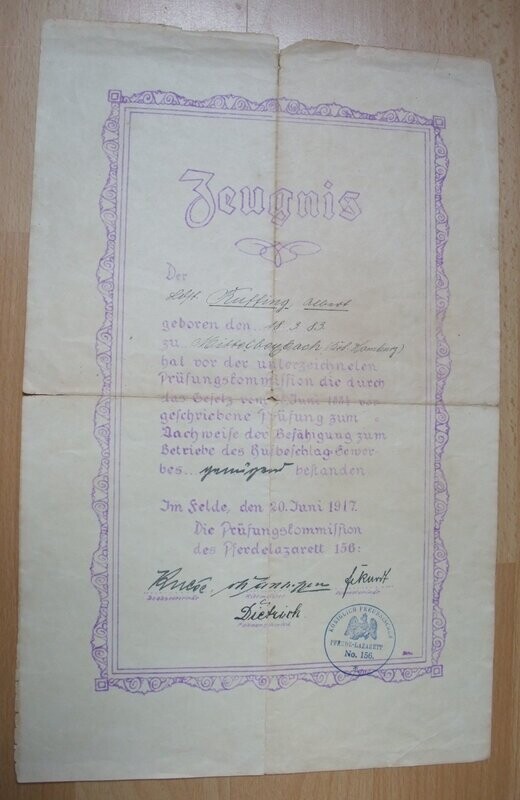 Zeugnis
Der
Ldst. Kuffing Albert
geboren den 18 3 83
zu Mittelbexbach (Bz. Homburg)
hat vor der unterzeichneten
Prüfungskommission die durch
das Gesetz vom Juni 1884 vor
geschriebene Prüfung zum
Nachweise der Befähigung zum
Betriebe des Hufbeschlag-Gewer-
bes... genügend bestanden
Im Felde, den 20. Juni 1917.
Die Prüfungskommission
des Pferdelazarett 156:
Eckart
Dietrich
KÖNIGLICH PREUSSISCHES
PFERDE-LAZARETT
No. 156.